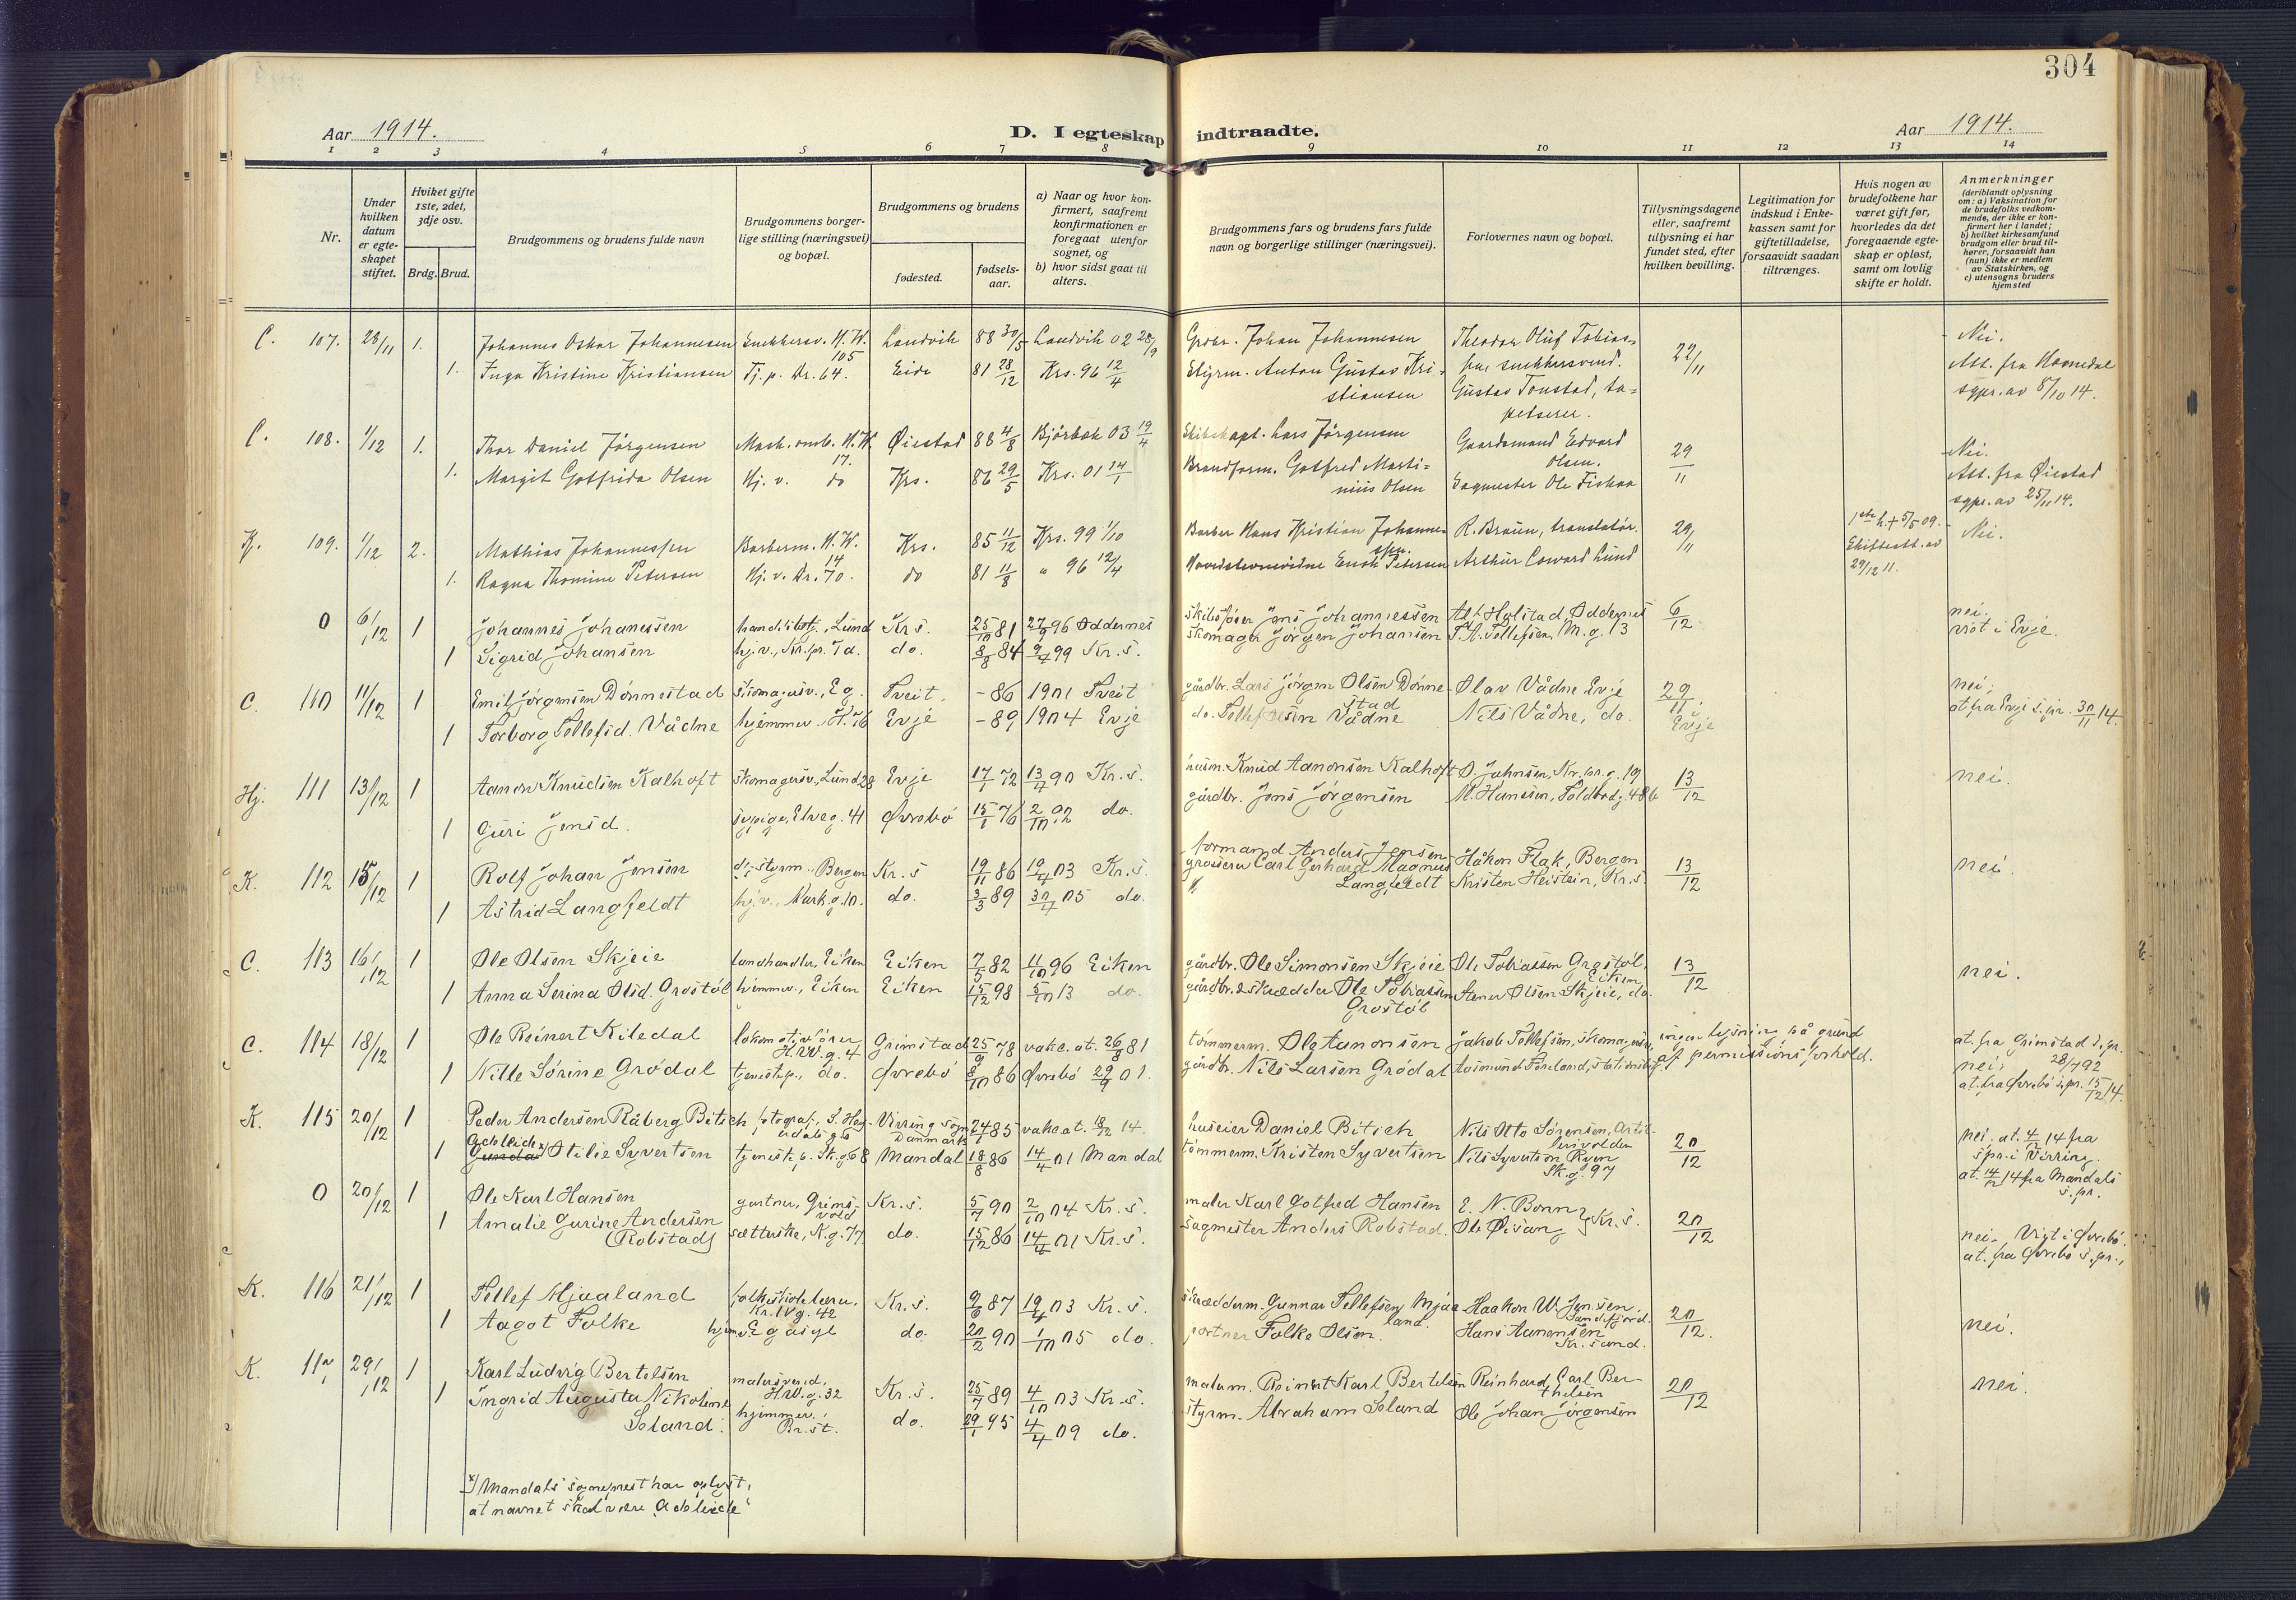 304
Aar 1914.
D. I egteskap indtraadte.
Aar 1914.
1 2 3 4 5 6 7 8 9 10 11 12 13 14
Nr.
Under hvilken datum er egteskapet stiftet.
Hviket gifte 1ste, 2det, 3dje osv.
Brdg. Brud.
Brudgommens og brudens fulde navn
Brudgommens borgerlige stilling (næringsvei) og bopæl.
Brudgommens og brudens
fødested.
fødselsaar.
a) Naar og hvor konfirmert, saafremt konfirmationen er foregaat utenfor sognet, og
b) hvor sidst gaat til alters.
Brudgommens fars og brudens fars fulde navn og borgerlige stillinger (næringsvei).
Forlovernes navn og bopæl.
Tillysningsdagene eller, saafremt tillysning ei har fundet sted, efter hvilken bevilling.
Legitimation for indskud i Enkekassen samt for giftetilladelse, forsaavidt saadan tiltrænges.
Hvis nogen av brudefolkene har været gift før, hvorledes da det foregaaende egteskap er opløst, samt om lovlig skifte er holdt.
Anmerkninger
(deriblandt oplysning om: a) Vaksination for de brudefolks vedkommende, der ikke er konfirmert her i landet;
b) hvilket kirkesamfund brudgom eller brud tilhører, forsaavidt han (hun) ikke er medlem av Statskirken, og
c) utensogns bruders hjemsted
C. 107. 28/11 1. Johannes Oskar Johannesen Snekkersv. H.W. 105 Landvik 88 30/5 Landvik 02 28/9 Grdbr. Johan Johannesen Theodor Oluf Tobias- 22/11 Nei.
1. Inga Kristine Kristiansen Tj. p. Dr. 64. Eide 81 28/12 Krs. 96 12/4 Styrm. Anton Gustav Kristiansen sen snekkersvend. Gustav Tonstad, tapetserer. Att. fra Homedal sgpr. av 8/10 14.
C. 108. 1/12 1. Thor Daniel Jörgensen Mask. omb. H.W. 17. Øiestad 88 4/8 Bjorbæk 03 19/4 Skibskapt. Lars Jörgensen Gaardsmand Edvard Olsen. 29/11 Nei.
1. Margit Gotfrida Olsen Hj. v. do Krs. 86 29/5 Krs. 01 14/1 Brandform. Gotfred Martinius Olsen Sagmester Ole Fiskaa Att. fra Øiestad sgpr. av 25/11 14.
K. 109. 1/12 2. Mathias Johannessen Barberm. H.W. 14 Krs. 85 11/12 Krs. 99 1/10 Barber Hans Kristian Johannessen. R. Braun, translatör. 29/11 1ste h. + 5/5 09. Nei.
1. Ragna Thomine Petersen Hj. v. Dr. 70. do 81 11/8 " 96 12/4 Enok Petersen Arthur Edward Lund Skifteatt. av 29/12 11.
0 6/12 1 Johannes Johanessen Lund Kr.s. 25/10 81 27/9 96 Oddernes skibsfører Jens Johannessen Alf Holstad, Oddernes 6/12 nei.
1 Sigrid Johansen hj.v., Kr.pr. 7a. do. 8/8 84 9/4 99 Kr.s. skomager Jörgen Johansen T.A. Tellefsen, M.g. 13 viet i Evje.
C. 110 11/12 1 Emil Jörgensen Dönnestad skomagersv., Eg. Tveit. - 86 1901 Tveit gårdbr. Lars Jörgen Olsen Dönnestad Olav Vådne Evje 29/11. Evje nei;
1 Torborg Tellefsd. Vådne hjemmev., H. 76 Evje - 89 1904 Evje do. Tellef Olsen Vådne Nils Vådne, do. at. fra Evje s.pr. 30/11 14.
Hj. 111 13/12 1 Aanon Knudsen Kalhoft skomagersv., Lund 28 Evje 17/1 72 13/4 90 Kr.s. husm. Knud Aanonsen Kalhoft O. Johnsen, Kr. pr.g. 19 13/12 nei.
1 Guri Jensd. sypige, Elveg. 41 Øvrebö 15/1 76 2/10 92 do. gårdbr. Jens Jörgensen M. Hanssen, Toldbodg. 48 b
K. 112 15/12 1 Rolf Johan Jensen styrm., Bergen Kr.s 19/11 86 19/4 03 Kr.s. formand Anders Jensen Håkon Flak, Bergen 13/12 nei.
1 Astrid Langfeldt hj.v., Mark.g. 10. do. 3/3 89 30/4 05 do. grosserer Carl Gerhard Magnus Langfeldt Kristen Heistein, Kr.s.
C. 113 16/12 1 Ole Olsen Skjeie landhandler, Eiken Eiken 7/5 82 11/10 96 Eiken gårdbr. Ole Simonsen Skjeie Ole Tobiassen Grostöl, Eiken 13/12 nei.
1 Anna Serina Olsd. Grostöl hjemmev., Eiken Eiken 15/12 98 5/10 13 do. gårdbr. & skrædder Ole Tobiassen Grostöl Stener Olsen Skjeie, do.
C. 114 18/12 1 Ole Reinert Kiledal lokomotivförer H.W.g. 4 Grimstad 25/9 78 vakc. at. 26/8 81 tömmerm. Ole Aanonsen Jakob Tellefsen, skomagersv. ingen lysning på grund af permissionsforhold. at. fra Grimstad s.pr. 28/7 92
1 Nille Sörine Grödal tjenestep., do. Øvrebö 8/10 86 Øvrebö 29/9 01. gårdbr. Nils Larsen Grödal Asmund Föreland, stationsbetj. nei; at. fra Øvrebö s.pr. 15/12 14.
K. 115 20/12 1 Peder Andersen Råberg Bitsch fotograf, S. Heyerdals g. 6 Virring sogn Danmark 24/1 85 vakc. at. 18/12 14. huseier Daniel Bitsch Nils Otto Sörensen, Artillerivolden 20/12 nei. at. 4/12 14 fra s.pr. i Virring.
1 Adeleide Gunda x) Otilie Syvertsen tjenestep. Sk.g. 68 Mandal 18/8 86 14/4 01 Mandal tömmerm. Kristen Syvertsen Nils Syvertsen Ryen Sk.g. 97 at. 14/12 14 fra Mandals s.pr.
0 20/12 1 Ole Karl Hansen gartner, Grimsvold Kr.s. 5/7 90 2/10 04 Kr.s. maler Karl Gotfred Hansen E. N. Bonn 20/12
1 Amalie Gurine Andersen (Robstad) sætterske, K.g. 77 do. 15/12 86 14/4 01 Kr.s. sagmester Anders Robstad. Ole Øisang Kr.s. nei. Viet i Øvrebö. at. fra Øvrebö s.pr.,
K. 116 21/12 1 Tellef Mjaaland folkeskolelærer, Kr. IV g. 42 Kr.s. 9/6 87 19/4 03 Kr.s. skrædderm. Gunnar Tellefsen Mjaaland. Haakon W. Jensen, Sandefjord. 20/12. nei.
1 Aagot Folke hjemv. Egåsyl do. 20/2 90 1/10 05 do. portner Folke Olsen. Hans Aanensen Kr.sand.
K. 117 29/12 1 Karl Ludvig Bertelsen malersvend, H.W.g. 32 Kr.s. 25/7 89 4/10 03 Kr.s. malerm. Reinert Karl Bertelsen Reinhard Carl Berthelsen 20/12 nei.
1 Ingrid Augusta Nikoline Soland. hjemmev., Br.st. do. 29/1 95 4/4 09 do. styrm. Abraham Soland Ole Johan Jörgensen
x) Mandals sogneprest har oplyst,
at navnet skal være "Adeleide"